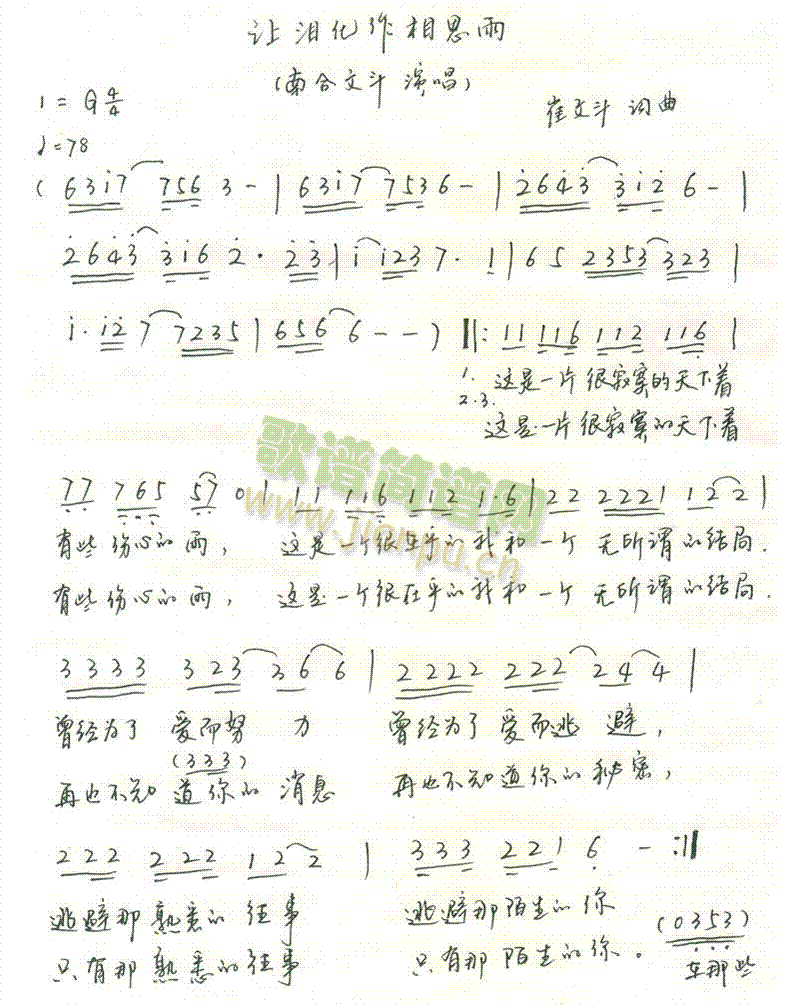 让泪化作相思雨
(南合文斗 演唱)
1=G4/4
崔文斗 词曲
♩=78
(6 3 i 7 7 5 6 3 - | 6 3 i 7 7 5 3 6 - | 2̇ 6 4̇ 3̇ 3̇ i 2̇ 6 - |
2̇ 6 4̇ 3̇ 3̇ i 6 2̇ · 2̇ 3̇ | i i 2 3 7 · 1 | 6 5 2 3 5 3 3 2 3 |
i · i 2̇ 7 7 2 3 5 | 6 5 6 6 - - ) ‖: 1 1 1 1 6 1 1 2 1 1 6 |
1. 这是一片很寂寞的天下着
2.3. 这是一片很寂寞的天下着
歌谱简谱网
www.jianpu.cn
7 7 7 6 5 5 7 0 | 1 1 1 1 6 1 1 2 1·6 | 2 2 2 2 2 1 1 2 2 |
有些伤心的雨, 这是一个很在乎的我和一个 无所谓的结局.
有些伤心的雨, 这是一个很在乎的我和一个 无所谓的结局.
3 3 3 3 3 2 3 3 6 6 | 2 2 2 2 2 2 2 2 4 4 |
曾经为了 爱而努 力 曾经为了爱而逃 避,
(3 3 3)
再也不知 道你的 消息 再也不知道你的秘密,
2 2 2 2 2 2 1 2 2 | 3 3 3 2 2 1 6 - :‖
逃避那熟悉的 往事 逃避那陌生的你
(0 3 5 3)
只有那熟悉的往事 只有那 陌生的你。 在那些